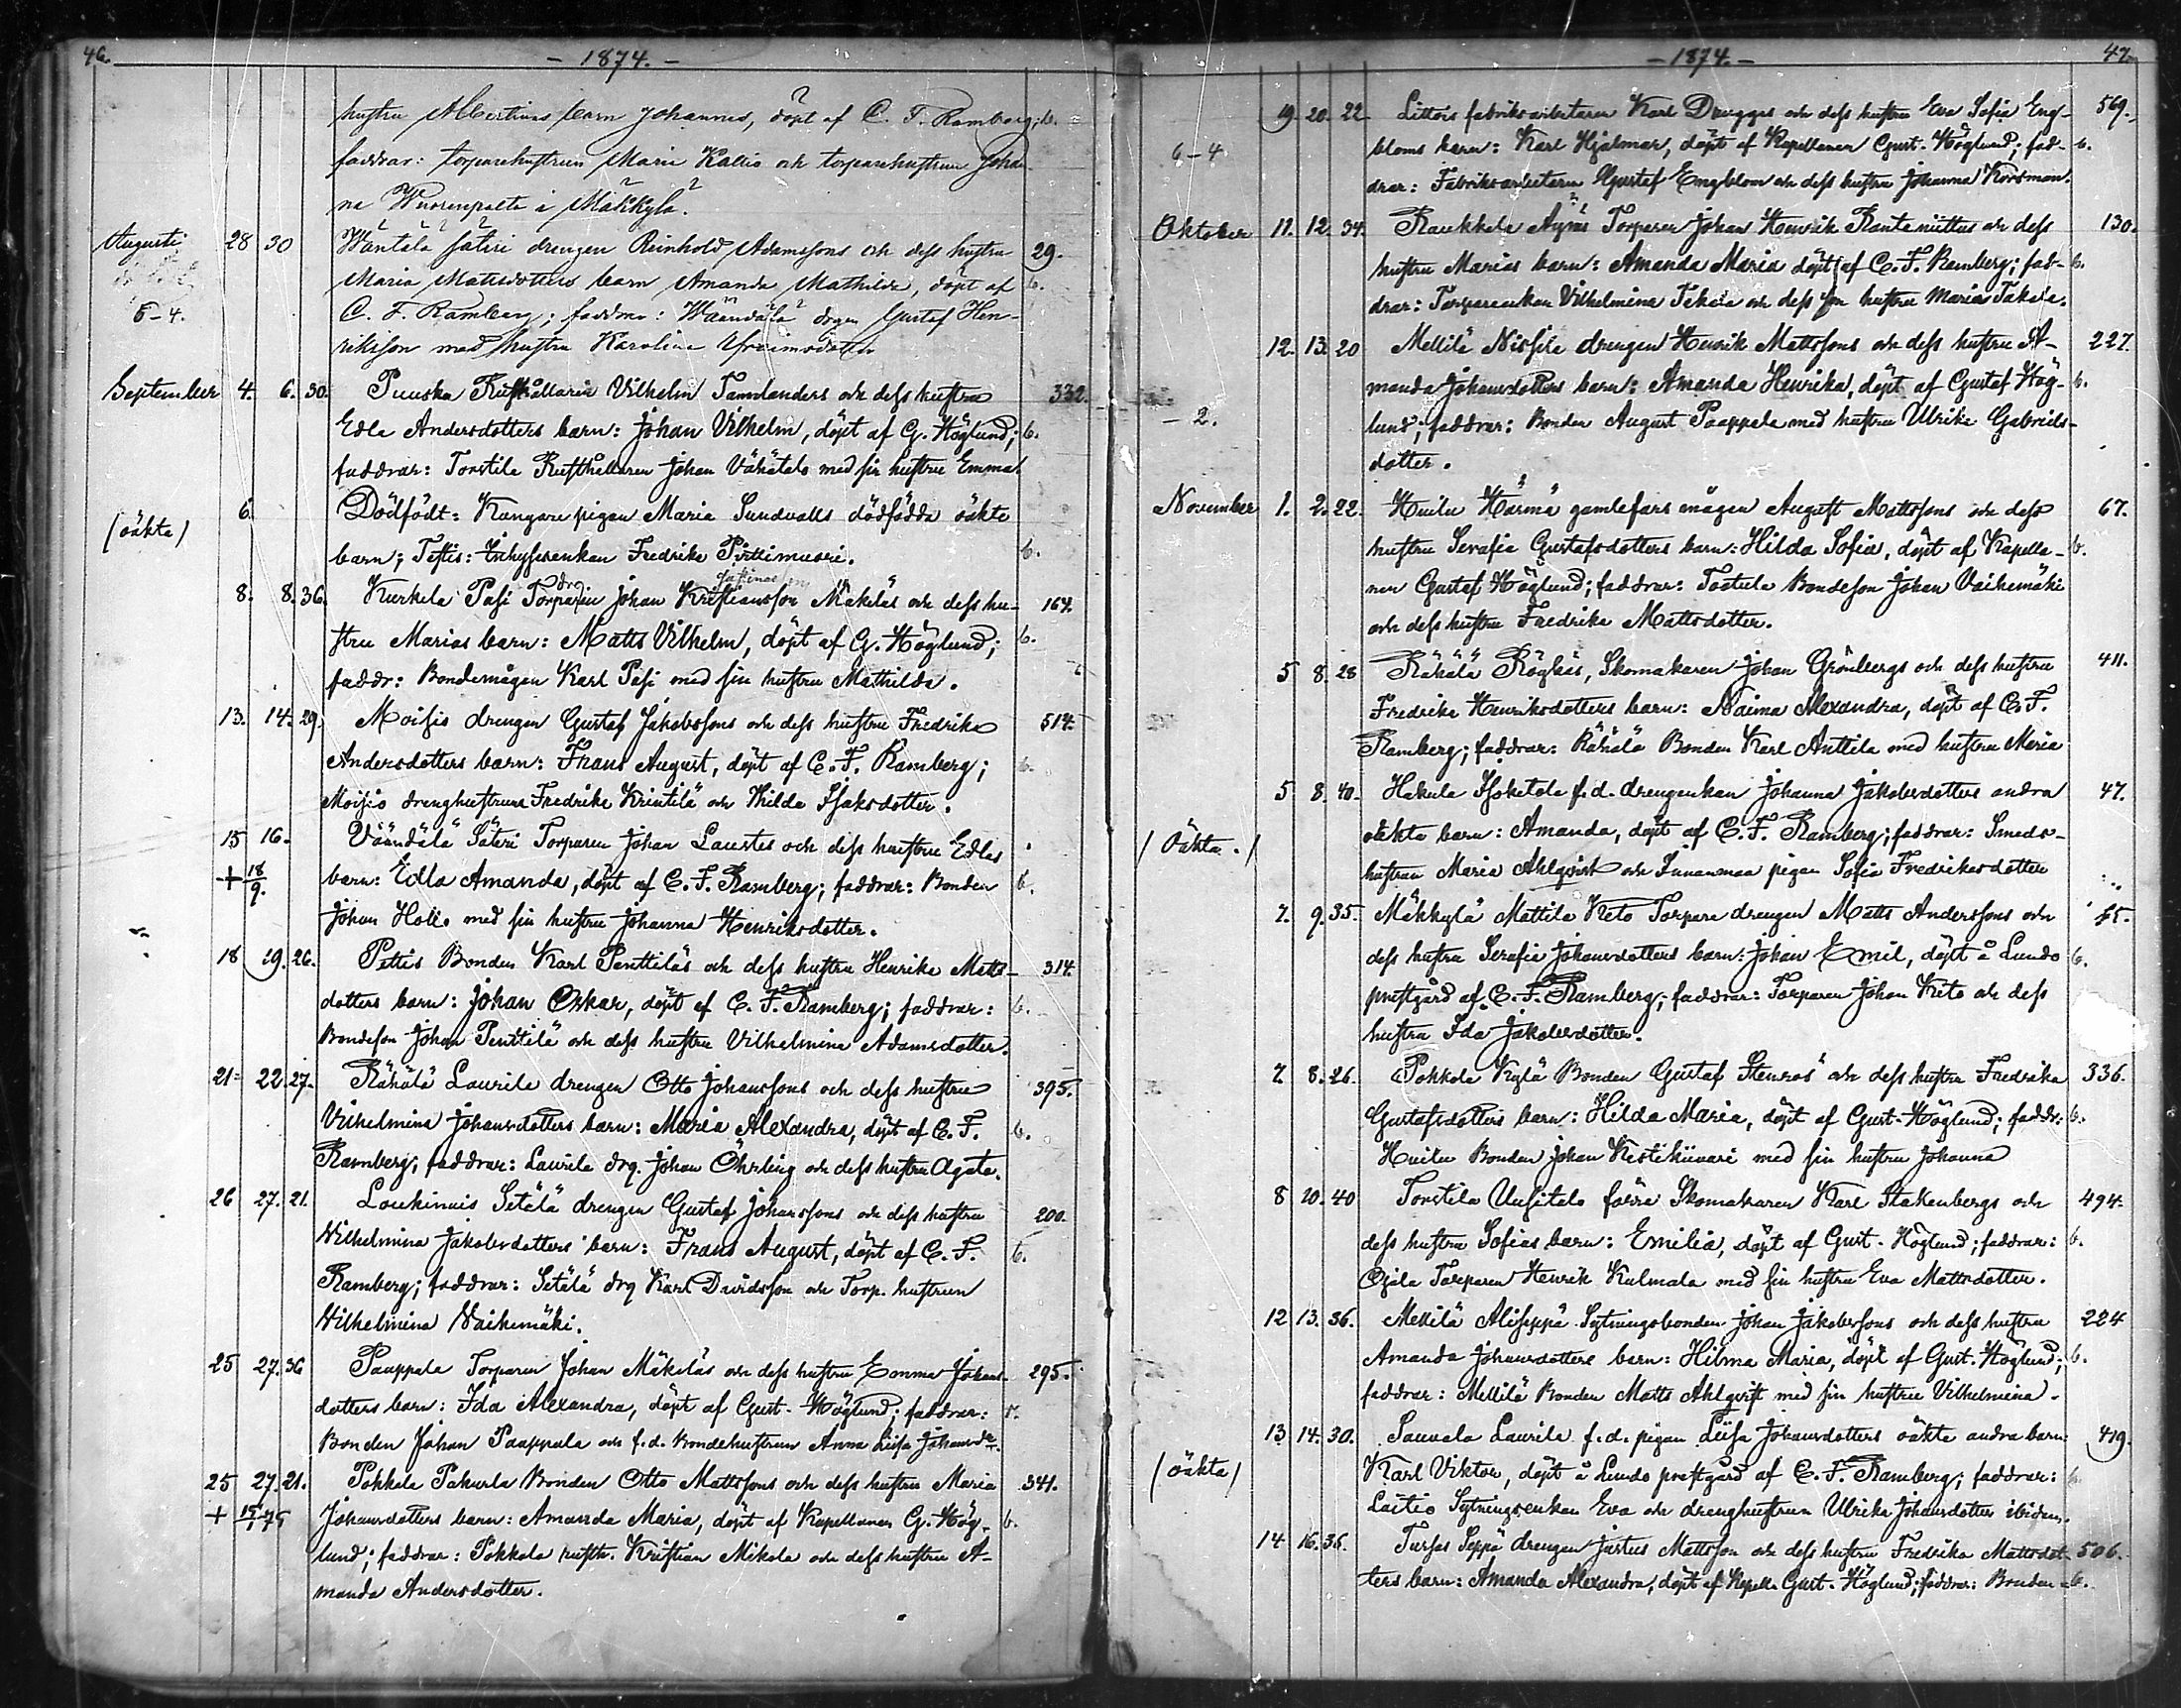 46. - 1874. -
hustru Albertinas barn Johannes, döpt af C. F. Ramberg; 6.
faddrar: torparehustrun Maria Kallio och torparehustrun Johan
na i Mäkkylä.
Augusti 28 30 Wäntälä säteri drengen Reinhold Adamssons och dess hustru 29.
Maria Mattsdotters barn Amanda Mathilda, döpt af 6.
6-4. C. F. Ramberg; faddrar: Wäändälä drgen Gustaf Hen-
riksson med hustru Karolina
September 4. 6. 30. Puuska Rusthållaren Vilhelm Tamlanders och dess hustru 332.
Edla Andersdotters barn: Johan Vilhelm, döpt af G. Höglund; 6.
faddrar: Torstila Rusthållaren Johan Vähätalo med sin hustru Emma.
6. Dödfödt: Kangare pigan Maria Sundvalls dödfödda oäkta
(oäkta) barn; Testis: Fredrika Pirttimuori. 6.
8. 8. 36. Kurkela Pasi Torparen Johan Kristiansson Mäkeläs och dess hu- 164.
stru Marias barn: Matts Vilhelm, döpt af G. Höglund; 6.
faddr: Bondemågen Karl Pasi med sin hustru Mathilda.
13. 14. 29. Moisis drengen Gustaf Jakobssons och dess hustru Fredrika 514.
Andersdotters barn: Frans August, döpt af C. F. Ramberg; 6.
Moisio drenghustruna Fredrika Krintilä och Hilda Isaksdotter.
15 16. Väändälä Säteri Torparen Johan Laustes och dess hustru Edlas
+ 18/9. barn: Edla Amanda, döpt af C. F. Ramberg; faddrar: Bonden 6.
Johan Hollo med sin hustru Johanna Henriksdotter.
18 19. 26. Pettis Bonden Karl Penttiläs och dess hustru Henrika Matts- 314.
dotters barn: Johan Oskar, döpt af C. F. Ramberg; faddrar: 6.
Bondeson Johan Penttilä och dess hustru Vilhelmina Adamsdotter.
21. 22. 27. Rähälä Laurila drengen Otto Johanssons och dess hustru 395.
Vilhelmina Johansdotters barn: Maria Alexandra, döpt af C. F. 6.
Ramberg; faddrar: Laurila drg. Johan Öhrling och dess hustru Agata.
26 27. 21. Loukinais Setälä drengen Gustaf Johanssons och dess hustru 200.
Wilhelmina Jakobsdotters barn: Frans August, döpt af C. F. 6.
Ramberg; faddrar: Setälä drg Karl Davidsson och Torp. hustrun
Wilhelmina Waihemäki.
25 27. 36 Paappala Torparen Johan Mäkiläs och dess hustru Emma Johans- 295.
dotters barn: Ida Alexandra, döpt af Gust. Höglund; faddrar:
Bonden Johan Paappala och f.d. Bondehustrun Anna Lisa
25 27. 21. Pokkola Pakurla Bonden Otto Mattssons och dess hustru Maria 341.
+ 15/1 75 Johansdotters barn: Amanda Maria, döpt af Kapellanen G. Hög- 6.
lund; faddrar: Pokkola rusth. Kristian Mikola och dess hustru A-
manda Andersdotter.
- 1874. - 47.
19. 20. 22. Littois fabriksarbetaren Karl Drugges och dess hustru Eva Sofia Eng- 569.
6-4 bloms barn: Karl Hjalmar, döpt af Kapellanen Gust. Höglund; fad- 6.
drar: Fabriksarbetaren Gustaf Engblom och dess hustru Johanna Korsman.
Oktober 11. 12. 34. Raukkala Äyräs Torparen Johan Henrik Rantaniittus och dess 130.
hustru Marias barn: Amanda Maria döpt af C. F. Ramberg; fad- 6.
drar: Torpareenkan Vilhelmina Takala och dess hustru Maria Takala.
12. 13. 20 Mellilä Nissilä drengen Henrik Mattssons och dess hustru A- 227.
manda Johansdotters barn: Amanda Henrika, döpt af Gustaf Hög- 6.
- 2. lund; faddrar: Bonden August Paappala med hustru Ulrika Gabriels-
dotter.
November 1. 2. 22. Huilu Härmä gamlefars mågen August Mattssons och dess 67.
hustru Serafia Gustafsdotters barn: Hilda Sofia, döpt af Kapella- 6.
nen Gustaf Höglund; faddrar: Tostula Bondeson Johan Vaihemäki
och dess hustru Fredrika Mattsdotter.
5 8. 28 Rähälä Röykäs, Skomakaren Johan Grönbergs och dess hustru 411.
Fredrika Henriksdotters barn: Naima Alexandra, döpt af C. F.
Ramberg; faddrar: Rähälä Bonden Karl Anttila med hustru Maria
5 8. 40. Hakula Isotalo f. d. drengenkan Johanna Jakobsdotters andra 47.
(Oäkta.) oäkta barn: Amanda, döpt af C. F. Ramberg; faddrar: Smeds-
hustrun Maria Ahlqvist och pigan Sofia Fredriksdotter
7. 9. 35. Mäkkylä Mattila Keto Torpare drengen Matts Anderssons och
dess hustru Serafia Johansdotters barn: Johan Emil, döpt å Lundo 6.
prestgård af C. F. Ramberg; faddrar: Torparen Johan Keto och dess
hustru Ida Jakobsdotter.
7. 8. 26. Pokkola Kylä Bonden Gustaf Stenroos och dess hustru Fredrika 336.
Gustafsdotters barn: Hilda Maria, döpt af Gust. Höglund; faddr: 6.
Huilu Bonden Johan med sin hustru Johanna
8 10. 40 Torstila Uusitalo förre Skomakaren Karl Stakenbergs och 494.
dess hustru Sofias barn: Emilia, döpt af Gust. Höglund; faddrar: 6.
Torparen Henrik Kulmala med sin hustru Eva Mattsdotter.
12 13. 36. Mellilä Aliseppä Sytningsbonden Johan Jakobssons och dess hustru 224
Amanda Johansdotters barn: Hilma Maria, döpt af Gust. Höglund; 6.
faddrar: Mellilä Bonden Matts Ahlqvist med sin hustru Vilhelmina.
13 14. 30. Sauvala Laurila f. d. pigan Liisa Johansdotters oäkta andra barn: 419.
(oäkta) Karl Viktor, döpt å Lundo prestgård af C. F. Ramberg; faddrar: 6.
Laitio Sytningsenkan Eva och drenghustrun Ulrika Johansdotter ibidem.
14 16. 36. Tursas Seppä drengen Justus Mattsson och dess hustru Fredrika Mattsdot- 506.
ters barn: Amanda Alexandra, döpt af Kapell. Gust. Höglund; faddrar: Bonden 6.